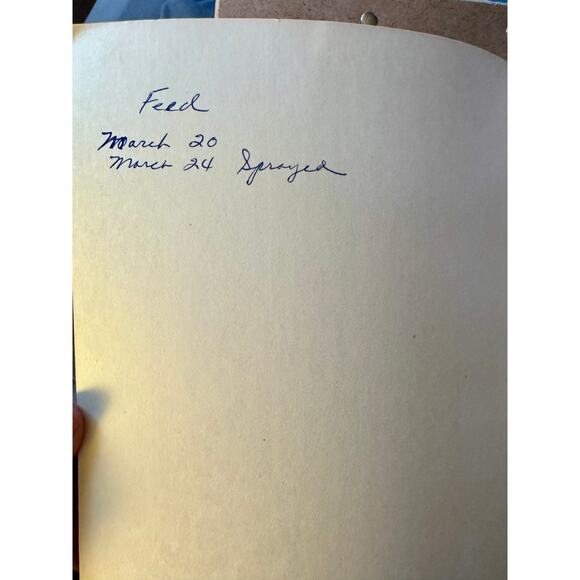 Feed
March 20
March 24 Sprayed